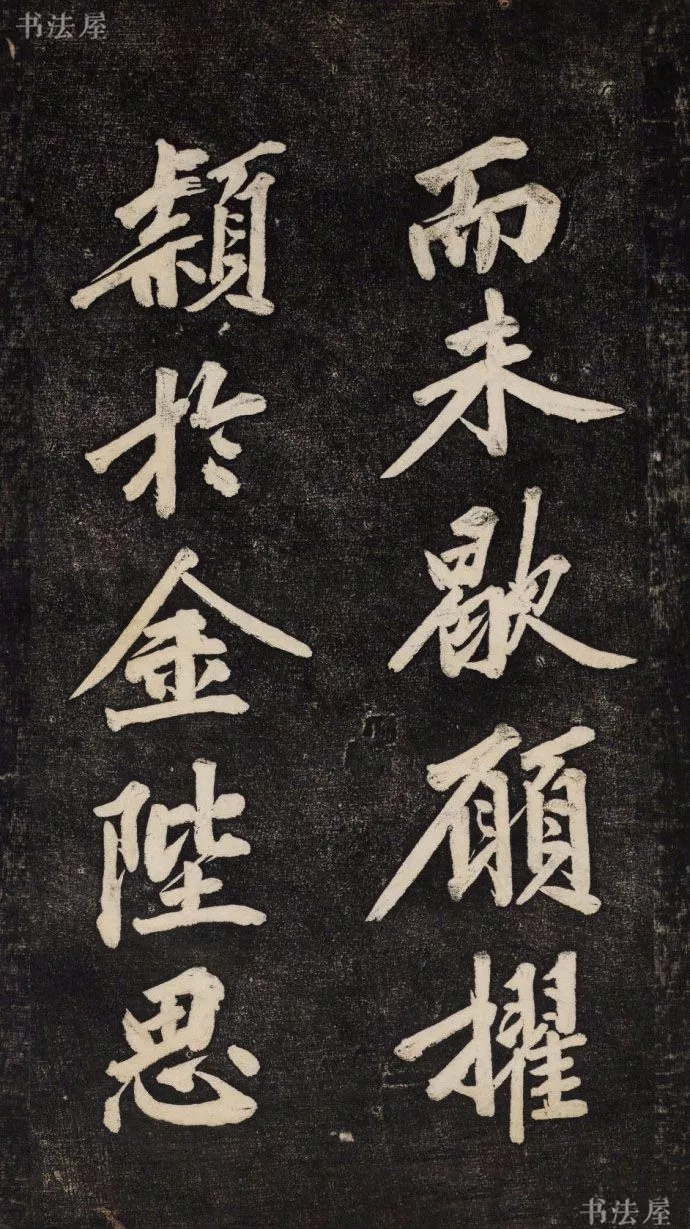 书法屋
而未歇願擢
穎於金陛思
书法屋